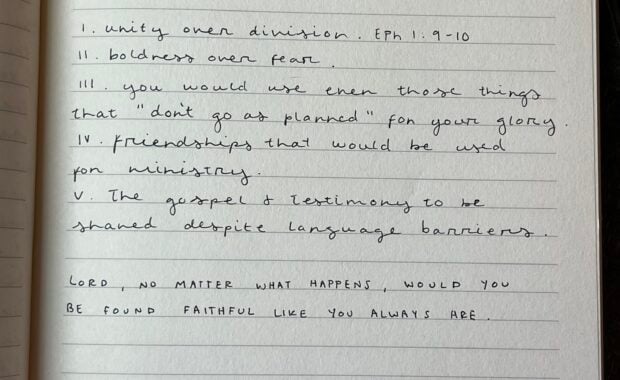 I. unity over division. Eph 1:9-10
II. boldness over fear.
III. you would use even those things
that "don't go as planned" for your glory.
IV. friendships that would be used
for ministry.
V. The gospel & testimony to be
shared despite language barriers.
LORD, NO MATTER WHAT HAPPENS, WOULD YOU
BE FOUND FAITHFUL LIKE YOU ALWAYS ARE.